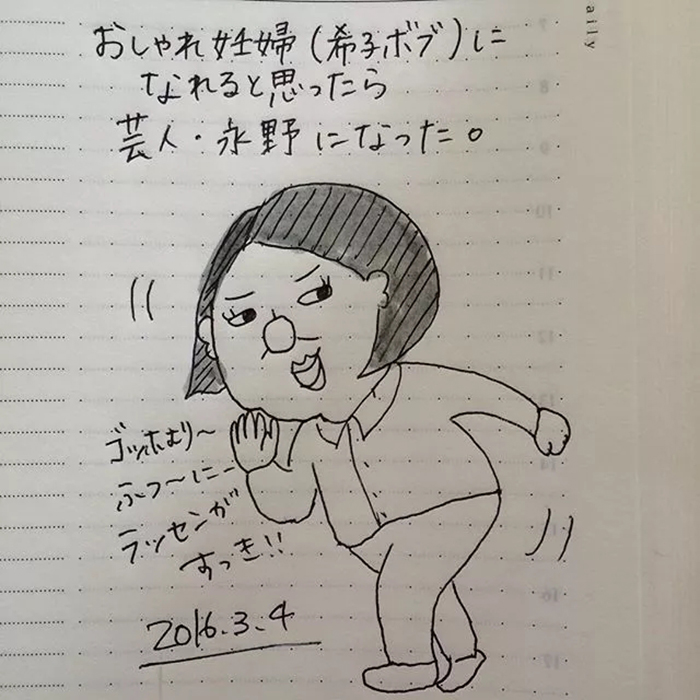 おしゃれ妊婦(希子ボブ)に
なれると思ったら
芸人・永野になった。
ゴッホより〜
ふつ〜にー
ラッセンが
すっき!!
2016.3.4
aily
7
8
9
10
11
12
13
14
16
17